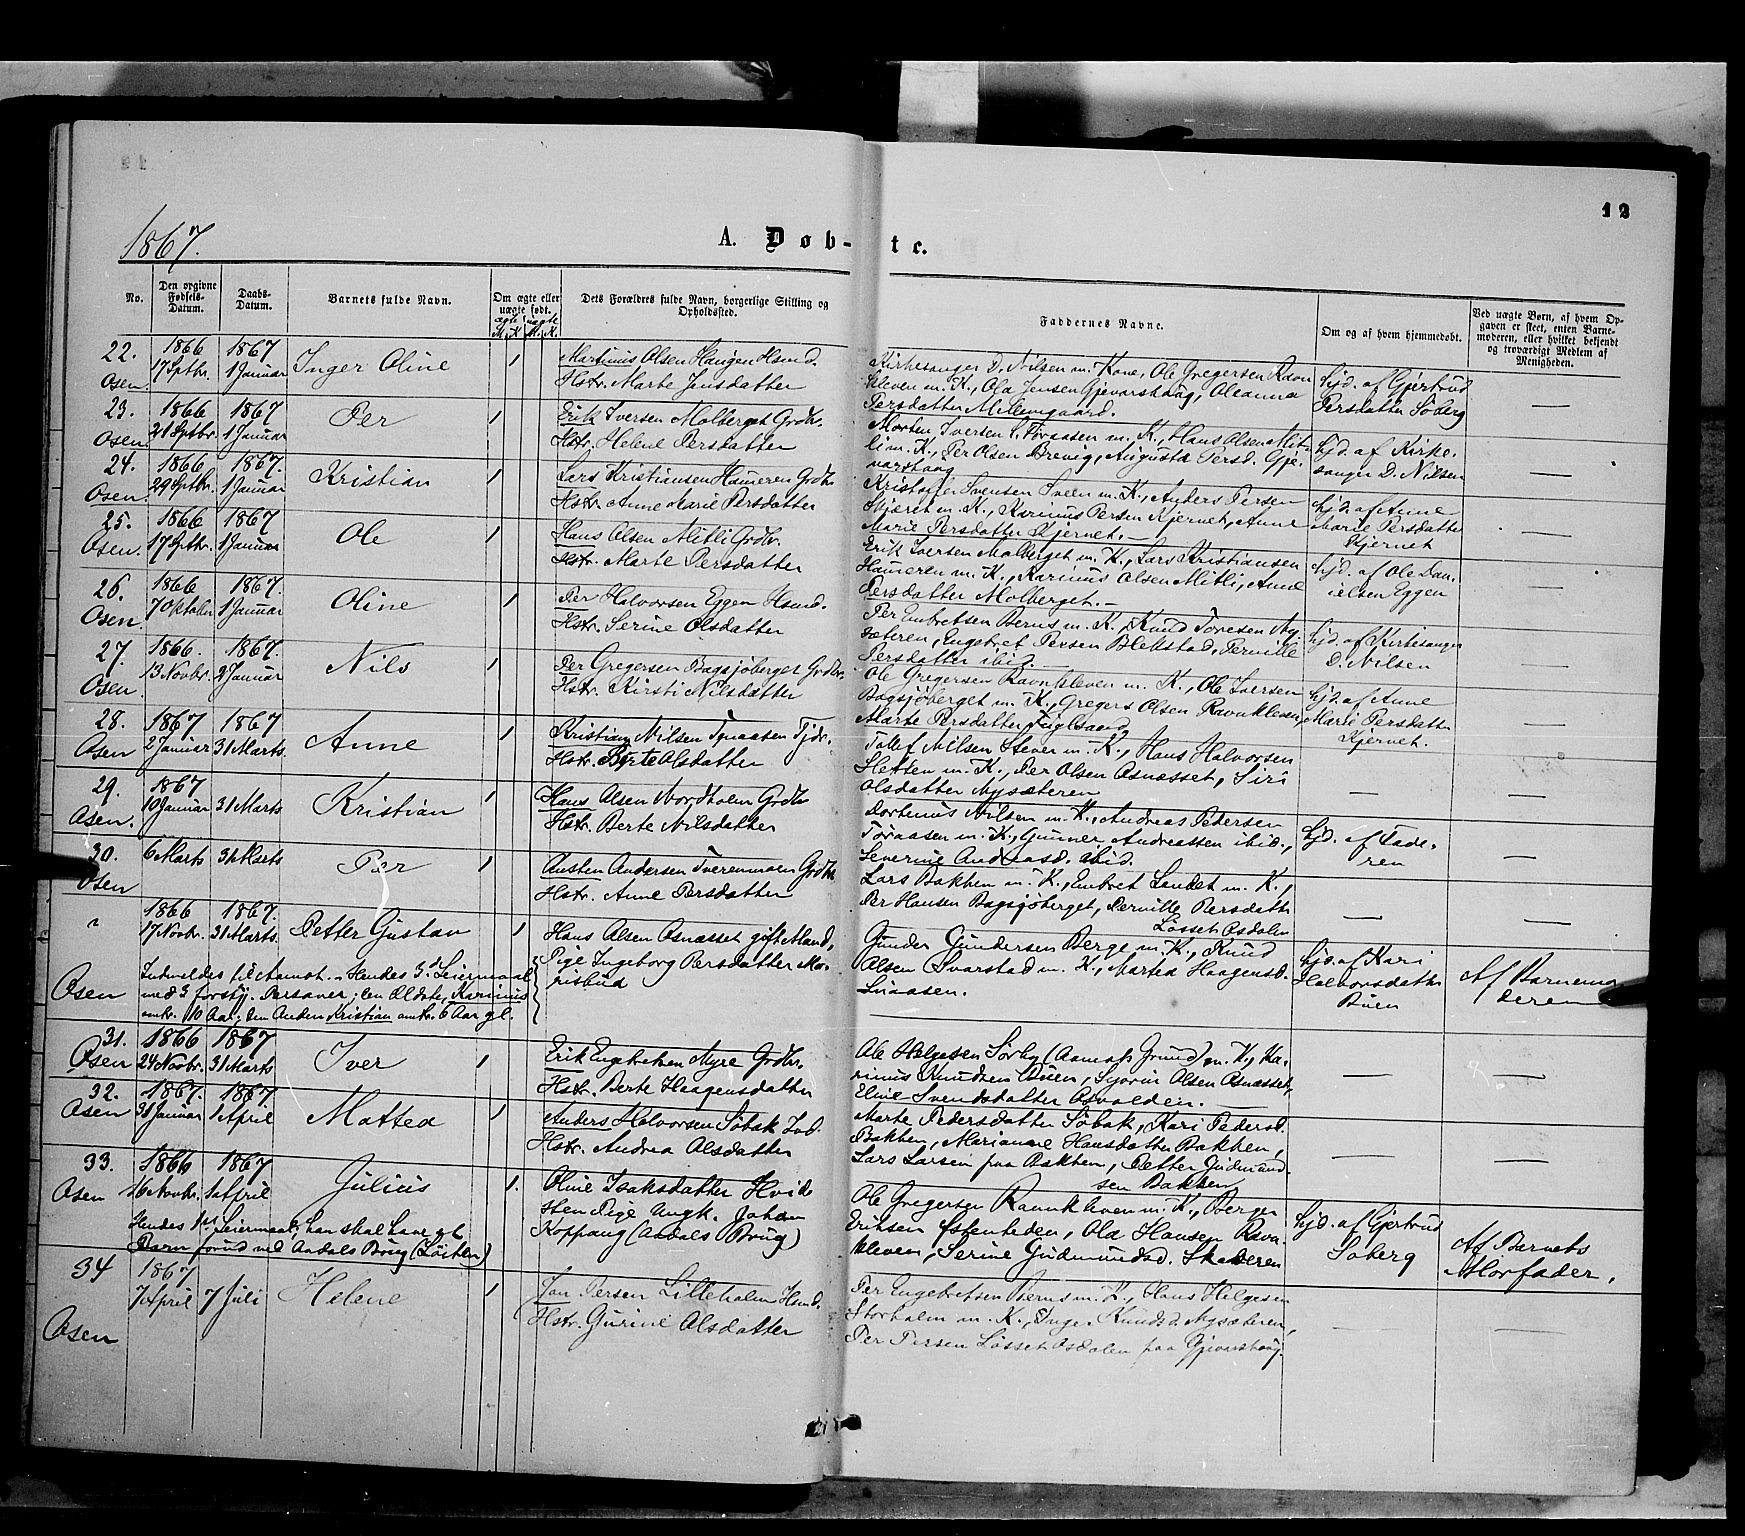 12
1867.
A. Døb-te.
No.
Den opgivne Fødsels-Datum.
Daabs-Datum.
Barnets fulde Navn.
Om ægte eller uægte født.
ægte uægte
M. K. M. K.
Dets Forældres fulde Navn, borgerlige Stilling og Opholdssted.
Faddernes Navne.
Om og af hvem hjemmedøbt.
Ved uægte Børn, af hvem Opgaven er skeet, enten Barnemoderen, eller hvilket bekjendt og troværdigt Medlem af Menigheden.
22. 1866 1867
Osen. 17 Sptbr. 1 Januar Inger Oline 1
Martinus Olsen Haugen Hsmd.
Hstr. Marte Jensdatter
Kirkesanger D. Nilsen m. Kone, Ole Gregersen Ravn
kleven m. K., Ola Jensen Gjevarshaug, Oleanna
Persdatter Mellemgaard.
hjd. af Gjertrud
Persdatter Søberg
23. 1866 1867
Osen. 21 Sptbr. 1 Januar Per 1
Erik Iversen Molberget Grdbr.
Hstr. Helene Persdatter
Morten Iversen Føraasen m. K., Hans Olsen Mit-
li m. K., Per Olsen Brevig, Augusta Persd. Gje-
varshaug
hjd. af Kirke-
sanger D. Nilsen
24. 1866 1867.
Osen. 29 Sptbr. 1 Januar Kristian 1
Lars Kristiansen Hameren Grdbr
Hstr. Anne Marie Persdatter
Kristofer Svensen Sveen m. K., Anders Persen
Skjæret m. K., Karinus Persen Kjernet, Anne
Marie Persdatter Kjernet.
hjd. af Anne
Marie Persdatter
Kjernet
25. 1866 1867
Osen. 17 Sptbr. 1 Januar Ole 1
Hans Olsen Mitli Grdbr.
Hstr. Marte Persdatter
Erik Iversen Molberget m. K., Lars Kristiansen
Hameren m. K., Karinus Olsen Mitli, Anne
Persdatter Molberget.
hjd. af Ole Dan-
ielsen Eggen
26. 1866 1867.
Osen. 7 Oktober 1 Januar Oline 1
Per Halvorsen Eggen Hsmd.
Hstr. Serine Olsdatter
Per Embretsen Berns m. K., Knud Toresen Ny-
sæteren, Engebret Persen Blekstad, Pernille
Persdatter ibid.
hjd. af Kirkesanger
D. Nilsen
27. 1866. 1867.
Osen. 13 Novbr. 2 Januar Nils 1
Per Gregersen Bagsjøberget Grdbr.
Hstr. Kirsti Nilsdatter
Ole Gregersen Ravnkleven m. K., Ole Iversen
Bagsjøberget m. K., Gregers Olsen Ravnkleven,
Marte Persdatter Fuglsang
hjd. af Anne
Marie Persdatter
Kjernet.
28. 1867 1867
Osen 2 Januar 31 Marts. Anne 1
Kristian Nilsen Tjdr.
Hstr. Berte Olsdatter
Tollef Nilsen Stener m. K., Hans Halvorsen
Sletten m. K., Per Olsen Osnæsset, Siri
Olsdatter Nysæteren
29. 1867
Osen. 10 Januar 31 Marts Kristian 1
Hans Olsen Nordholm Grdbr
Hstr. Berte Nilsdatter
Dortenus Nilsen m. K., Andreas Pedersen
Føraasen m. K., Gunner Andreassen ibid.,
Severine Andreasd. ibid.
hjd. af Fade-
ren
30. 6 Marts 31 Marts
Osen Per 1
Austen Andersen Tverenmoen Grdbr.
Hstr. Anne Persdatter
Lars Bakken m. K., Embret Lundet m. K.,
Per Hansen Bagsjøberget, Pernille Persdatter
Løsset Osdalen
1866 1867.
Osen 17 Novbr. 31 Marts. Petter Gustav 1
Hans Olsen Osnæsset gift Mand,
Pige Ingeborg Persdatter Mo-
risbua
Indmeldes til Aamot. Hendes 3d Leiermaal
med 3 forskj. Personer; den Ældste, Karinus
omkr. 10 Aar, den Anden Kristian omkr. 6 Aar gl.
Gunder Gundersen Berge m. K., Knud
Olsen Svarstad m. K., Martea Haagensd.
Liaasen.
hjd. af Kari
Halvorsdatter
Buen
Af Barnemo
deren
31. 1866 1867
Osen 24 Novbr. 31 Marts Iver 1
Erik Engebretsen Myre Grdbr.
Hstr. Berte Haagensdatter
Ole Helgesen Sørby (Aamots Grund) m. K., Ka-
rinus Knudsen Buen, Syver Olsen Osnæsset,
Eline Svendsdatter Osvolden.
32. 1867. 1867
Osen 31 Januar 1 April Mattea 1
Anders Halvorsen Søbak Ind.
Hstr. Andrea Olsdatter
Marte Pedersdatter Søbak, Kari Pedersd.
Bakken, Marianne Hansdatter Bakken,
Lars Larsen paa Bakken, Petter Gudmund-
sen Bakken
33. 1866 1867
Osen 16 Novbr. 1 April Julius 1.
Oline Isaksdatter Hvid-
sten Pige Ungk. Johan
Koppang (Aadals Brug)
Hendes 1ste Leiermaal; han skal have 2
Barn forud ved Aadals Brug (Løiten)
Ole Gregersen Ravnkleven m. K., Berger
Eriksen Estenheden, Ola Hansen Ravn-
kleven, Serine Gudmundsd. Skaderen
hjd. af Gjertrud
Søberg
Af Barnets
Morfader,
34 1867
Osen 7 April 7 Juli Helene 1
Jon Persen Lilleholm Hsmd.
Hstr. Gurine Olsdatter
Per Engebretsen Berns m. K., Hans Helgesen
Storholm m. K., Inger Knudsd. Nysæteren,
Per Persen Løsset Osdalen paa Gjevarshaug.